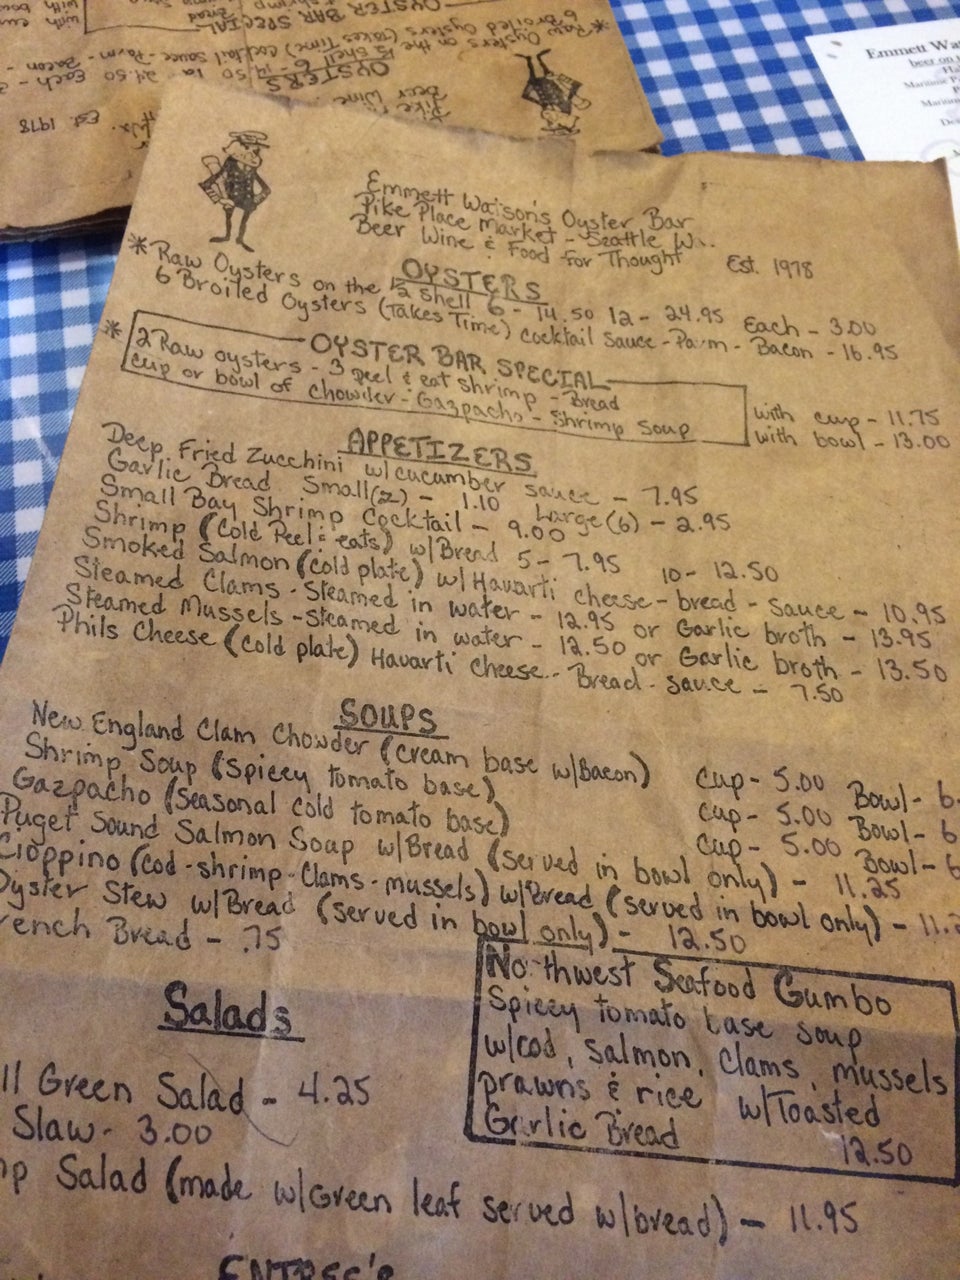 Emmett Watson's Oyster Bar
Pike Place Market - Seattle Wa.
Beer Wine & Food for Thought
Est. 1978
OYSTERS
* Raw Oysters on the ½ shell 6 - 14.50 12 - 24.95 Each - 3.00
6 Broiled Oysters (Takes Time) cocktail sauce - Parm - Bacon - 16.95
OYSTER BAR SPECIAL
* 2 Raw oysters - 3 peel & eat shrimp - Bread
cup or bowl of chowder - Gazpacho - Shrimp Soup
with cup - 11.75
with bowl - 13.00
APPETIZERS
Deep Fried Zucchini w/cucumber sauce - 7.95
Garlic Bread Small(2) - 1.10 Large(6) - 2.95
Small Bay Shrimp Cocktail - 9.00
Shrimp (Cold Peel & eats) w/Bread 5 - 7.95 10 - 12.50
Smoked Salmon (cold plate) w/Havarti cheese - bread - sauce - 10.95
Steamed Clams - Steamed in water - 12.95 or Garlic broth - 13.95
Steamed Mussels - steamed in water - 12.50 or Garlic broth - 13.50
Phils Cheese (cold plate) Havarti Cheese - Bread - sauce - 7.50
SOUPS
New England Clam Chowder (cream base w/Bacon) cup - 5.00 Bowl - 6
Shrimp Soup (spicey tomato base) cup - 5.00 Bowl - 6
Gazpacho (seasonal cold tomato base) cup - 5.00 Bowl - 6
Puget Sound Salmon Soup w/Bread (served in bowl only) - 11.25
Cioppino (cod - shrimp - clams - mussels) w/Bread (served in bowl only) - 11.2
Oyster Stew w/Bread (served in bowl only) - 12.50
rench Bread - .75
Northwest Seafood Gumbo
Spicey tomato base soup
w/cod, salmon, clams, mussels
prawns & rice w/Toasted
Garlic Bread 12.50
Salads
ll Green Salad - 4.25
Slaw - 3.00
mp Salad (made w/Green leaf served w/bread) - 11.95
ENTREE'S
Emmett Wat
beer on
OYSTER BAR SPECIAL
Raw Oysters on the
6 Broiled Oysters (Takes Time) cocktail sauce - Parm - Bacon -
OYSTERS
½ shell 6 - 14.50 12 - 24.50 Each - 3
Pike
Beer Wine
Est. 1978